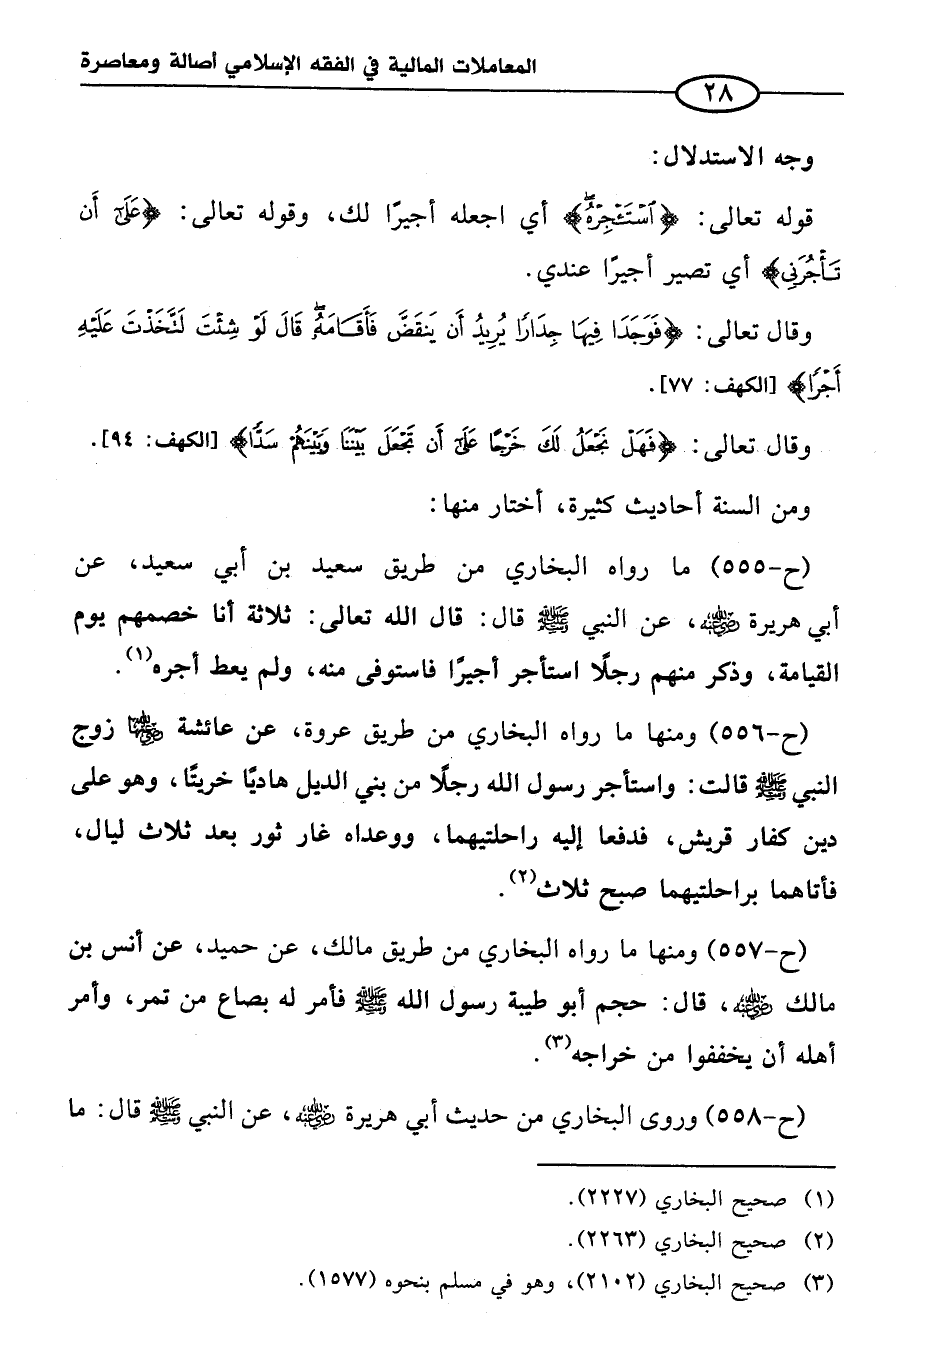 المعاملات المالية في الفقه الإسلامي أصالة ومعاصرة
٢٨
وجه الاستدلال:
قوله تعالى: ﴿ٱسۡتَـٔۡجِرۡهُۖ﴾ أي اجعله أجيرًا لك، وقوله تعالى: ﴿عَلَىٰٓ أَن
تَأۡجُرَنِي﴾ أي تصير أجيرًا عندي.
وقال تعالى: ﴿فَوَجَدَا فِيهَا جِدَارٗا يُرِيدُ أَن يَنقَضَّ فَأَقَامَهُۥۖ قَالَ لَوۡ شِئۡتَ لَتَّخَذۡتَ عَلَيۡهِ
أَجۡرٗا﴾ [الكهف: ٧٧].
وقال تعالى: ﴿فَهَلۡ نَجۡعَلُ لَكَ خَرۡجًا عَلَىٰٓ أَن تَجۡعَلَ بَيۡنَنَا وَبَيۡنَهُمۡ سَدّٗا﴾ [الكهف: ٩٤].
ومن السنة أحاديث كثيرة، أختار منها:
(ح-٥٥٥) ما رواه البخاري من طريق سعيد بن أبي سعيد، عن
أبي هريرة ﵁، عن النبي ﷺ قال: قال الله تعالى: ثلاثة أنا خصمهم يوم
القيامة، وذكر منهم رجلًا استأجر أجيرًا فاستوفى منه، ولم يعط أجره(١).
(ح-٥٥٦) ومنها ما رواه البخاري من طريق عروة، عن عائشة ﵂ زوج
النبي ﷺ قالت: واستأجر رسول الله رجلًا من بني الديل هاديًا خريتًا، وهو على
دين كفار قريش، فدفعا إليه راحلتيهما، ووعداه غار ثور بعد ثلاث ليال،
فأتاهما براحلتيهما صبح ثلاث(٢).
(ح-٥٥٧) ومنها ما رواه البخاري من طريق مالك، عن حميد، عن أنس بن
مالك ﵁، قال: حجم أبو طيبة رسول الله ﷺ فأمر له بصاع من تمر، وأمر
أهله أن يخففوا من خراجه(٣).
(ح-٥٥٨) وروى البخاري من حديث أبي هريرة ﵁، عن النبي ﷺ قال: ما
(١) صحيح البخاري (٢٢٢٧).
(٢) صحيح البخاري (٢٢٦٣).
(٣) صحيح البخاري (٢١٠٢)، وهو في مسلم بنحوه (١٥٧٧).